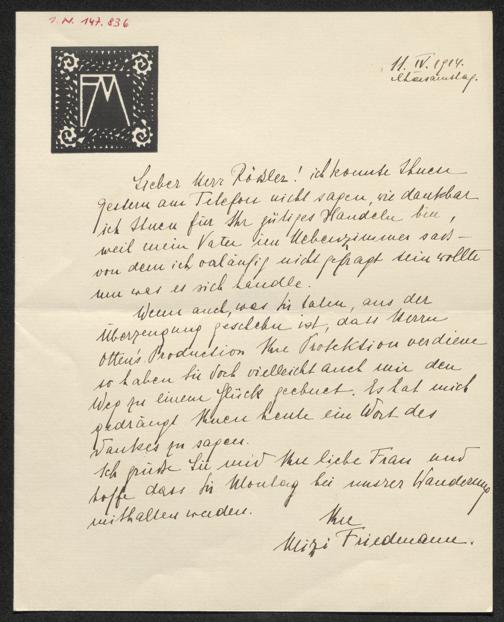 I. N. 147.836
FM
11. IV. 1914.
Charsamstag.
Lieber Herr Rößler! ich konnte Ihnen
gestern am Telefon nicht sagen, wie dankbar
ich Ihnen für Ihr gütiges Handeln bin,
weil mein Vater im Nebenzimmer sass –
von dem ich vorläufig nicht gefragt sein wollte
um was es sich handle.
Wenn auch, was Sie taten, aus der
Überzeugung geschehn ist, dass Herrn
Otten's Production Ihre Protektion verdiene
so haben Sie doch vielleicht auch mir den
Weg zu einem Glück geebnet. Es hat mich
gedrängt Ihnen heute ein Wort des
Dankes zu sagen.
Ich grüsse Sie und Ihre liebe Frau und
hoffe dass Sie Montag bei unsrer Wanderung
mithalten werden.
Ihre
Mizi Friedmann.